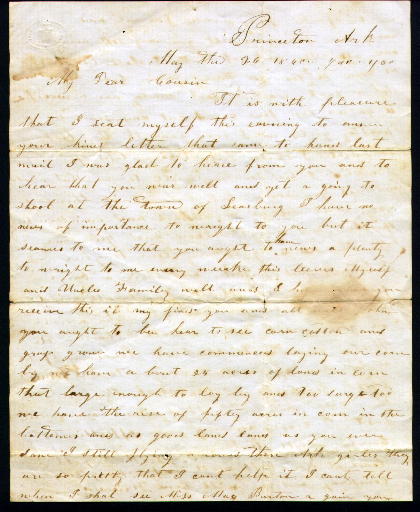 Princeton Ark
May the 26 18
My Dear Cousin
It is with pleasure
that I seat myself this evening to
your kind letter that came to hand last
mail I was glad to heare from you and to
hear that you was well and yet a going to
shool at the town of I have no
news of importance to wright to you but it
seames to me that you aught to have news a plenty
to wright to me every weake this leaves Myself
and Uncles Family well and I
receive this it my find you and all
you aught to be hear to see corn cotton and
grow we have commenced laying our corn
by we have a bout 24 acres of land in corn
that large enough to lay by and too large too
we have the rise of fifty acres in corn in the
bottoms and as good land land as you ever
saw I still flying a round there Ark girles they
are so pretty that I cant help it I cant tell
when I shal see Miss Mag Burton a gain you